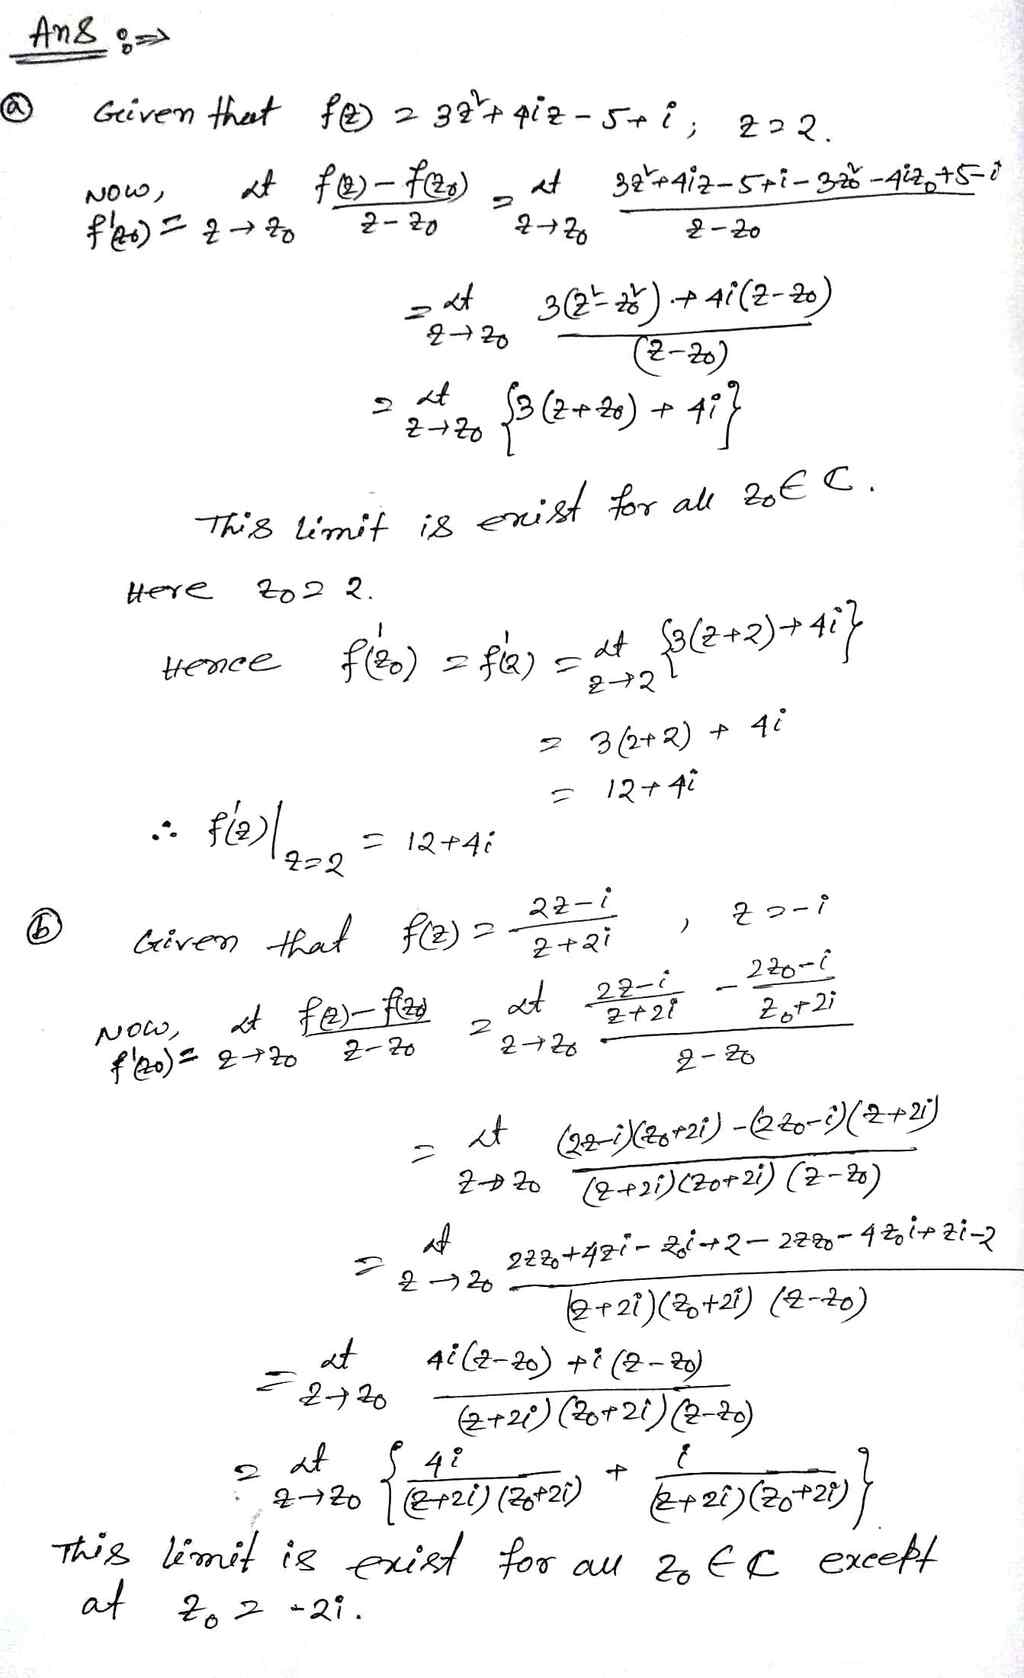 Ans :⇒
ⓐ Given that f(z) = 3z² + 4iz - 5 + i ; z = 2.
Now, f'(z₀) = Lt z→z₀ (f(z) - f(z₀))/(z - z₀) = Lt z→z₀ (3z² + 4iz - 5 + i - 3z₀² - 4iz₀ + 5 - i)/(z - z₀)
= Lt z→z₀ (3(z² - z₀²) + 4i(z - z₀))/((z - z₀))
= Lt z→z₀ {3(z + z₀) + 4i}
This limit is exist for all z₀ ∈ ℂ.
Here z₀ = 2.
Hence f'(z₀) = f'(2) = Lt z→2 {3(z+2) + 4i}
= 3(2+2) + 4i
= 12 + 4i
∴ f'(z)|z=2 = 12 + 4i
ⓑ Given that f(z) = (2z - i)/(z + 2i) , z = -i
Now, f'(z₀) = Lt z→z₀ (f(z) - f(z₀))/(z - z₀) = Lt z→z₀ ((2z - i)/(z + 2i) - (2z₀ - i)/(z₀ + 2i))/(z - z₀)
= Lt z→z₀ ((2z - i)(z₀ + 2i) - (2z₀ - i)(z + 2i))/((z + 2i)(z₀ + 2i)(z - z₀))
= Lt z→z₀ (2zz₀ + 4zi - z₀i + 2 - 2zz₀ - 4z₀i + zi - 2)/((z + 2i)(z₀ + 2i)(z - z₀))
= Lt z→z₀ (4i(z - z₀) + i(z - z₀))/((z + 2i)(z₀ + 2i)(z - z₀))
= Lt z→z₀ {4i/((z + 2i)(z₀ + 2i)) + i/((z + 2i)(z₀ + 2i))}
This limit is exist for all z₀ ∈ ℂ except
at z₀ = -2i.